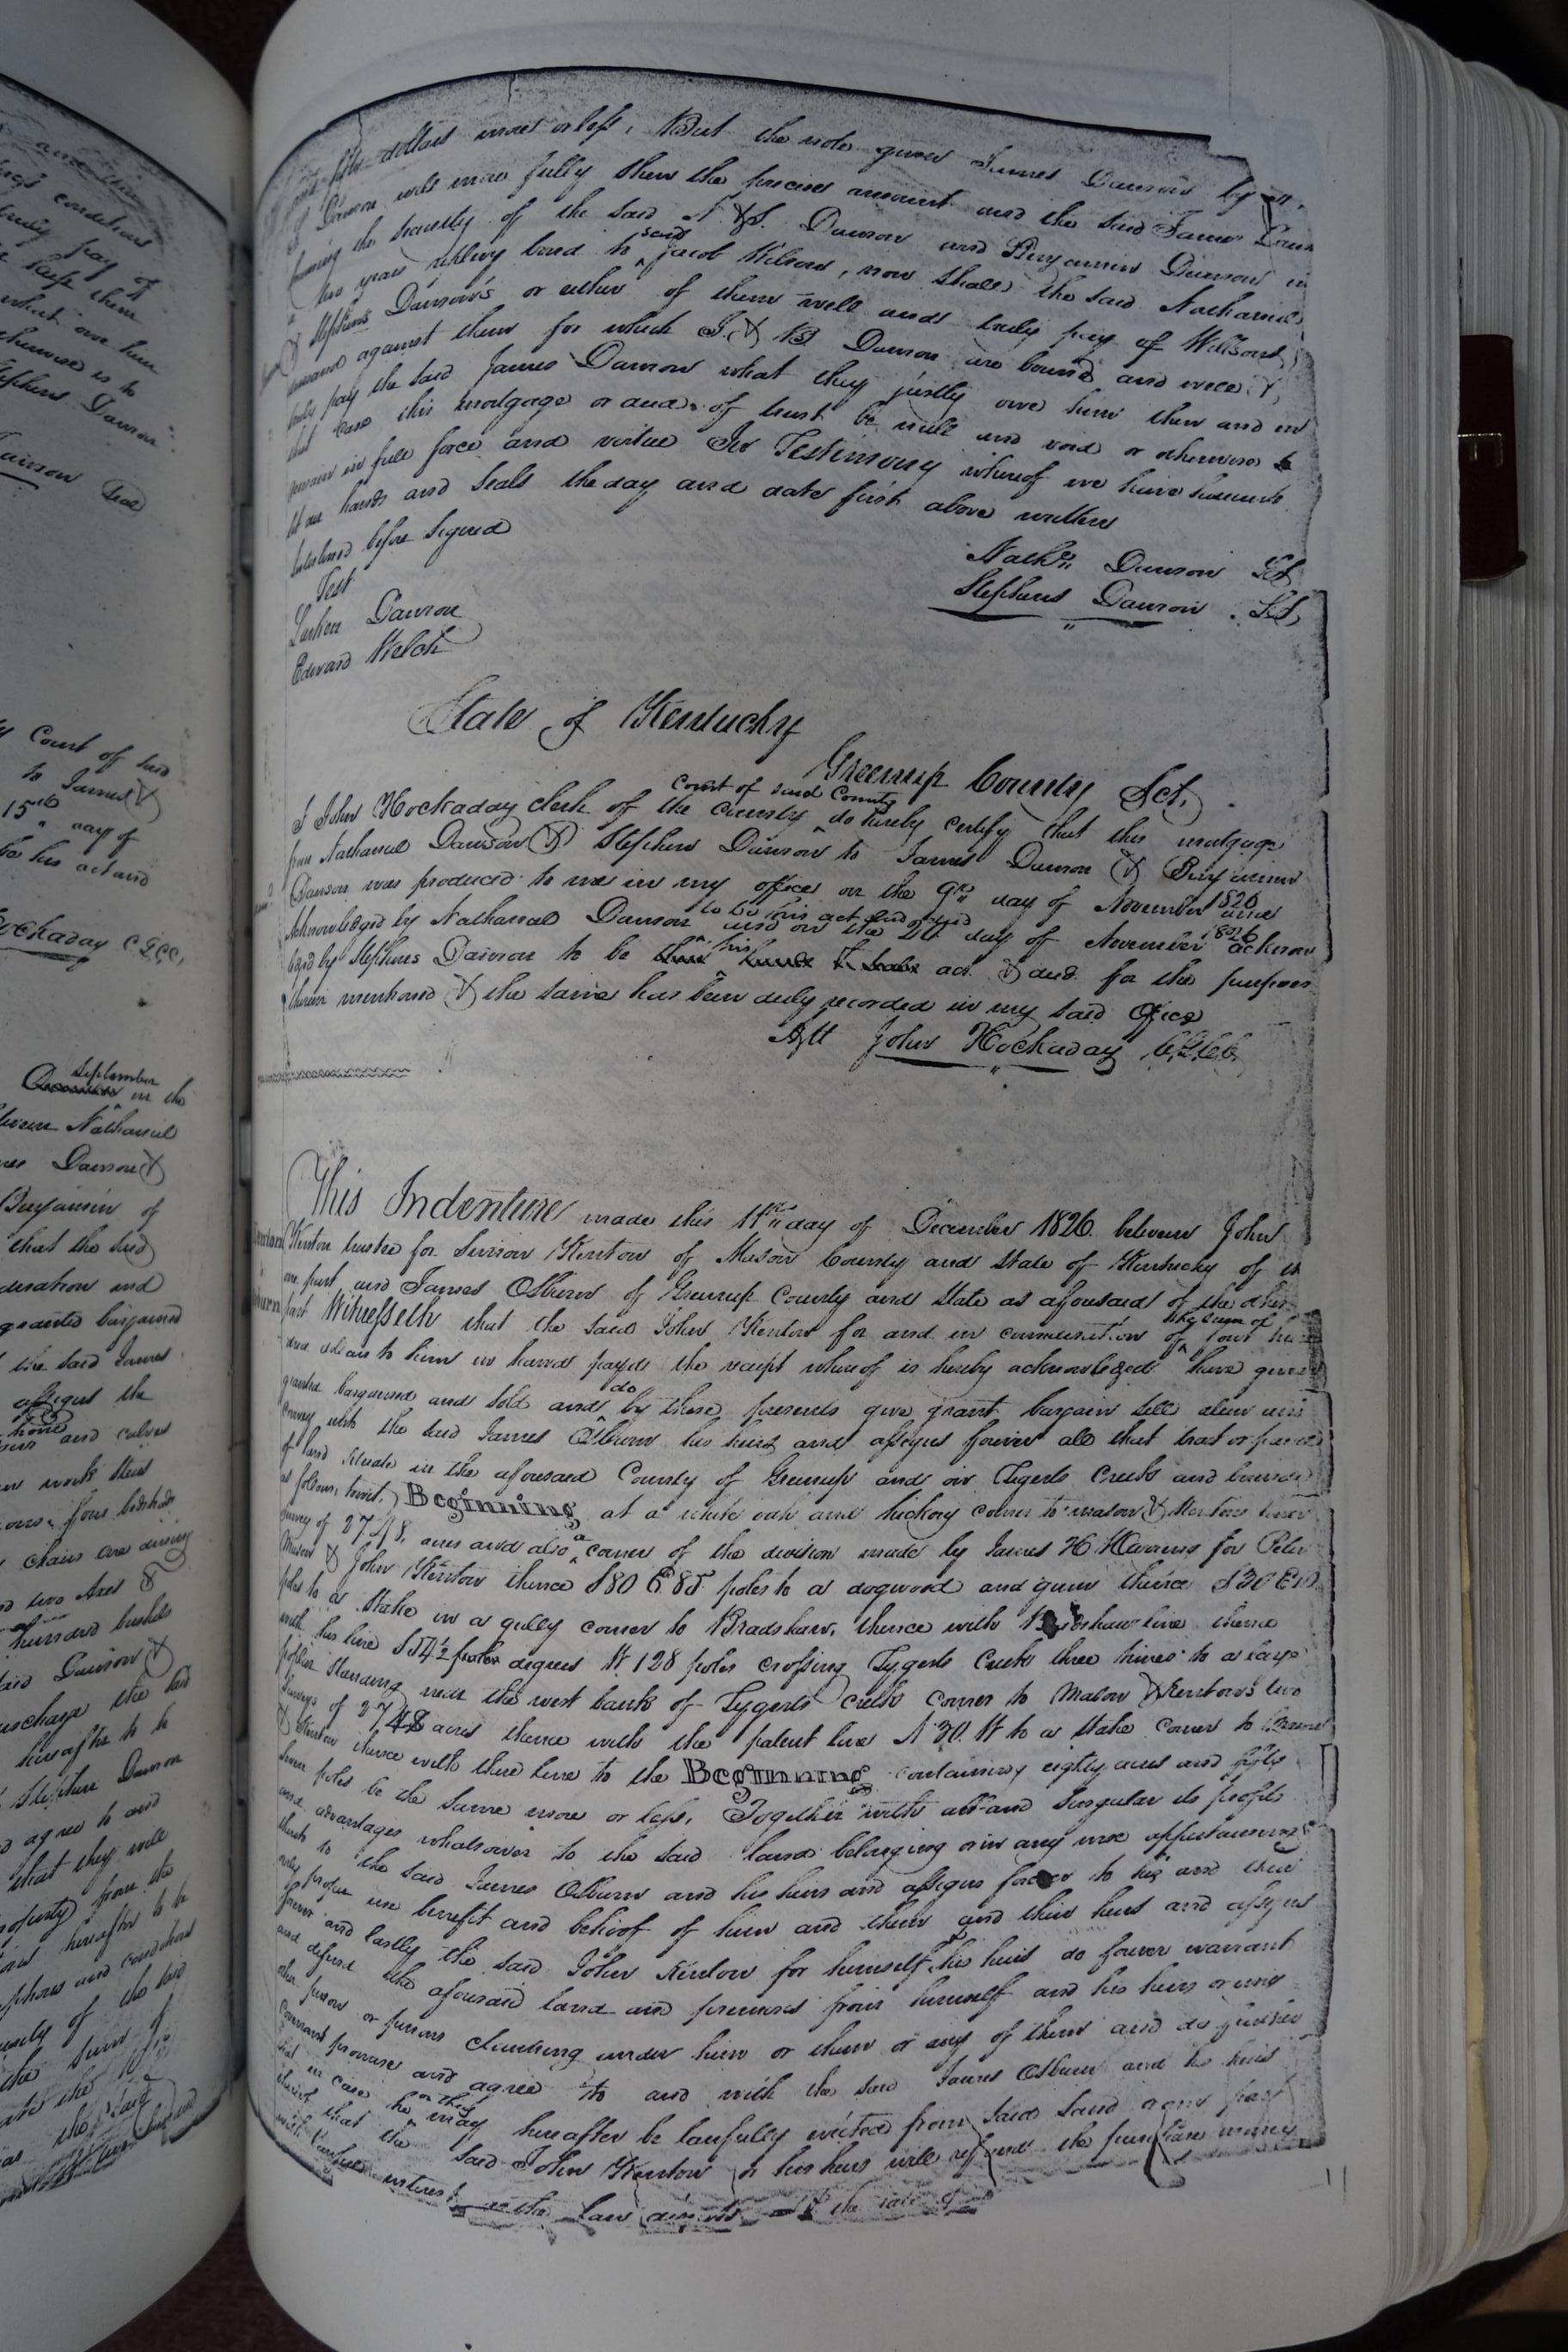 and conditions
truly pay of
keep them
what over how
otherwise is to
Stephens Dawson
Dawson Seal
Court of said
to James &
15th day of
to be his act and
Hockaday C G CC,
September
in the
between Nathaniel
Dawson &
Benjamin of
that the said
consideration and
granted bargained
the said James
assigns the
and calves
work steers
four bedsteads
chairs one dining
two Axes 8
hundred bushels
said Dawson &
discharge the said
hereafter to be
Stephen Dawson
agree to and
that they will
property from the
hereafter to be
and conditions
of the said
the sum of
the said
five dollars more or less, But the note given James Dawson by N.
S Dawson will more fully shew the precise amount and the said James Daw
being the security of the said N & S. Dawson and Benjamin Dawson in
two years replevy bond to said Jacob Wilson, now shall the said Nathaniel
& Stephens Dawson's or either of them well and truly pay of Willsons
demand against them for which J. & B Dawson are bound and well &
truly pay the said James Dawson what they justly owe him then and in
that case this mortgage or deed of trust be null and void or otherwise to
remain in full force and virtue In Testimony whereof we have hereunto
set our hands and seals the day and date first above written
Interlined before signed
Test
Larken Dawson
Edward Welch
Nathl. Dawson LS
Stephens Dawson LS
State of Kentucky
Greenup County Sct.
I John Hockaday clerk of the county court of said County do hereby certify that this mortgage
from Nathaniel Dawson & Stephen Dawson to James Dawson & Benjamin
Dawson was produced to me in my office on the 9th day of November 1826 and
Acknowledged by Nathaniel Dawson to be his act and deed and on the day of November 1826 acknow
ledged by Stephens Dawson to be his act & deed for the purposes
therein mentioned & the same has been duly recorded in my said Office
Att John Hockaday C.G.C.C.
This Indenture made this 11th day of December 1826 between John
Kenton trustee for Simon Kenton of Mason County and State of Kentucky of th
one part and James Osburn of Greenup County and State as aforesaid of the other
part Witnesseth that the said John Kenton for and in consideration of the sum of four hu
dred dollars to him in hand payed the receipt whereof is hereby acknowledged have given
granted bargained and sold and do by these presents give grant bargain sell alien and
convey unto the said James Osburn his heirs and assigns forever all that tract or parcel
of land situate in the aforesaid County of Greenup and on Tygerts Creek and bounded
as follows, towit, Beginning at a white oak and hickory corner to mason & Kentons
survey of 2748, acres and also a corner of the division made by James H for Peter
Mason & John Kenton thence S80 E 85 poles to a dogwood and gum thence S30 E
poles to a stake in a gully corner to Bradshaw, thence with Bradshaw line thence
with his line S54½ poles degrees W. 128 poles crossing Tygerts Creek three times to a large
poplar standing near the west bank of Tygerts creek corner to Mason & Kentons two
Surveys of 2748 acres thence with the patent line N 30. W to a stake corner to
& Kenton thence with there line to the Beginning containing eighty acres and fifty
seven poles be the same more or less, Together with all and singular its profits
and advantages whatsoever to the said land belonging or in any wise appertaining
thereto to the said James Osburn and his heirs and assigns forever to his and their
only proper use benefit and behoof of him and them and their heirs and assigns
forever and lastly the said John Kenton for himself & his heirs do forever warrant
and defend the aforesaid land and premises from himself and his heirs or any
other person or persons claiming under him or them or any of them and do further
covenant promise and agree to and with the said James Osburn and his heirs
that in case he or they may hereafter be lawfully evicted from said land or any part
thereof that the said John Kenton or his heirs will refund the purchase money
with lawful interest